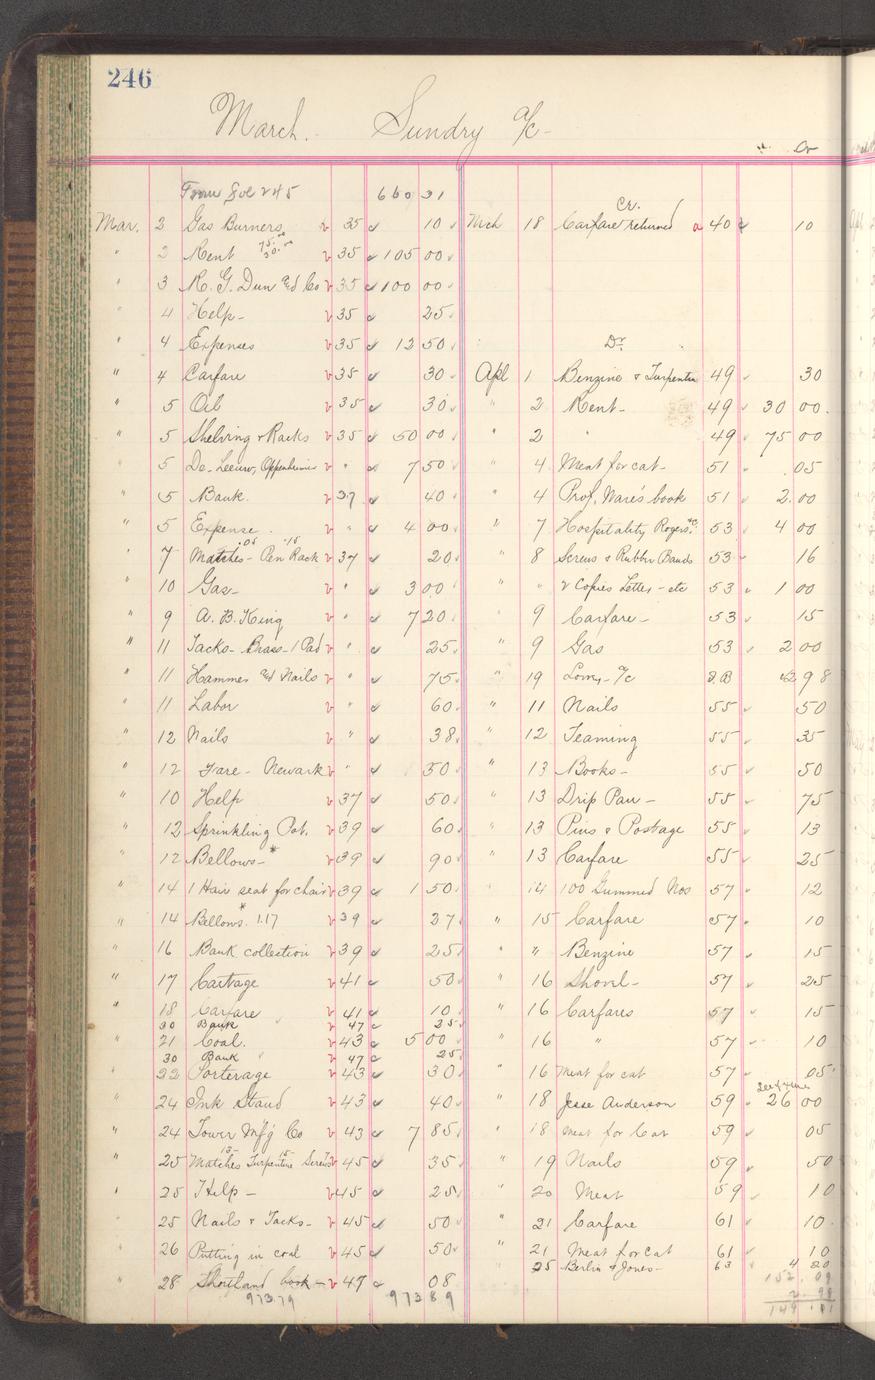 246
March. Sundry a/c
Cr
From Fol 245 660 31
Mar. 2 Gas Burners 35 10
" 2 Rent 75.00 30.00 35 105 00
" 3 R. G. Dun & Co 35 100 00
" 4 Help- 35 25
" 4 Expenses 35 12 50
" 4 Carfare 35 30
" 5 Oil 35 30
" 5 Shelving & Racks 35 50 00
" 5 De Leeuw, Oppenheimer " 7 50
" 5 Bank. 37 40
" 5 Expense. " 4 00
" 7 Matches .05 - Pen Rack .15 37 20
" 10 Gas- " 3 00
" 9 A. B. King " 7 20
" 11 Tacks- Brass- 1 Pad " 25
" 11 Hammer & Nails " 75
" 11 Labor " 60
" 12 Nails " 38
" 12 Fare - Newark " 50
" 10 Help 37 50
" 12 Sprinkling Pot. 39 60
" 12 Bellows-* 39 90
" 14 1 Hair seat for chair 39 1 50
" 14 Bellows.* 1.17 39 27
" 16 Bank collection 39 25
" 17 Cartage 41 50
" 18 Carfare 41 10
30 Bank 47 25
" 21 Coal. 43 5 00
30 Bank " 47 25
" 22 Porterage 43 30
" 24 Ink Stand 43 40
" 24 Tower Mf'g Co 43 7 85
" 25 Matches Turpentine Screws 45 35
" 25 Help - 45 25
" 25 Nails & Tacks- 45 50
" 26 Putting in coal 45 50
" 28 Shorthand book - 47 08
973 79 973 89
Cr.
Mch 18 Carfare returned 40 10
Dr
Apl 1 Benzine & Turpentine 49 30
" 2 Rent- 49 30 00
" 2 " 49 75 00
" 4 Meat for cat- 51 .05
" 4 Prof. Ware's book 51 2.00
" 7 Hospitality, Rogers &c. 53 4 00
" 8 Screws & Rubber Bands 53 16
" " 2 Copies Letter - etc 53 1 00
" 9 Carfare- 53 15
" 9 Gas 53 2 00
" 19 a/c 2 98
" 11 Nails 55 50
" 12 Teaming 55 35
" 13 Books- 55 50
" 13 Drip Pan - 55 75
" 13 Pins & Postage 55 13
" 13 Carfare 55 25
" 14 100 Gummed Nos 57 12
" 15 Carfare 57 10
" " Benzine 57 15
" 16 Shovel- 57 25
" 16 Carfares 57 15
" 16 " 57 10
" 16 Meat for cat 57 05
" 18 Jesse Anderson 59 26 00
" 18 Meat for Cat 59 05
" 19 Nails 59 50
" 20 Meat 59 10
" 21 Carfare 61 10
" 21 Meat for cat 61 10
" 25 Berlin & Jones- 63 4 20
152.09
2.98
149.11